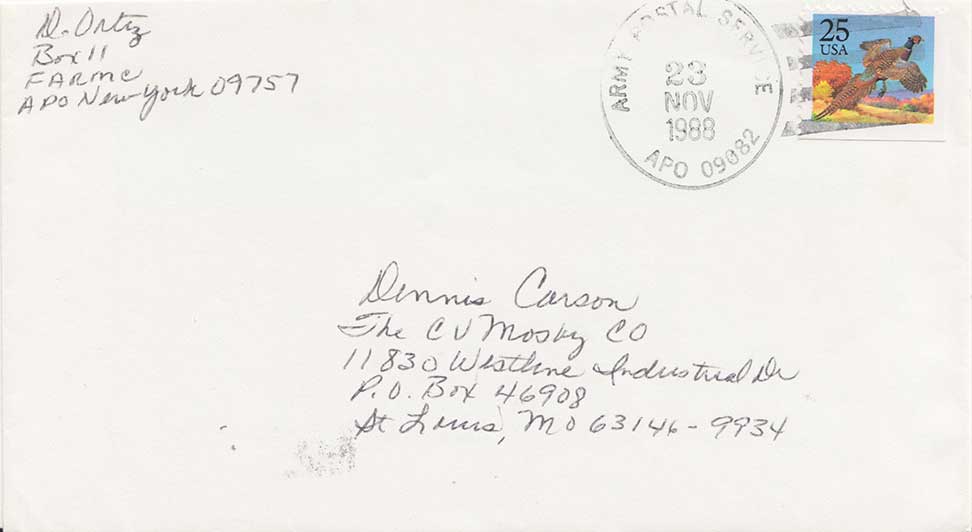 D. Ortiz
Box 11
FARMC
APO New York 09757
ARMY POSTAL SERVICE
23
NOV
1988
APO 09082
25
USA
Dennis Carson
The CV Mosby CO
11830 Westline Industrial Dr
P.O. Box 46908
St Louis, MO 63146-9934